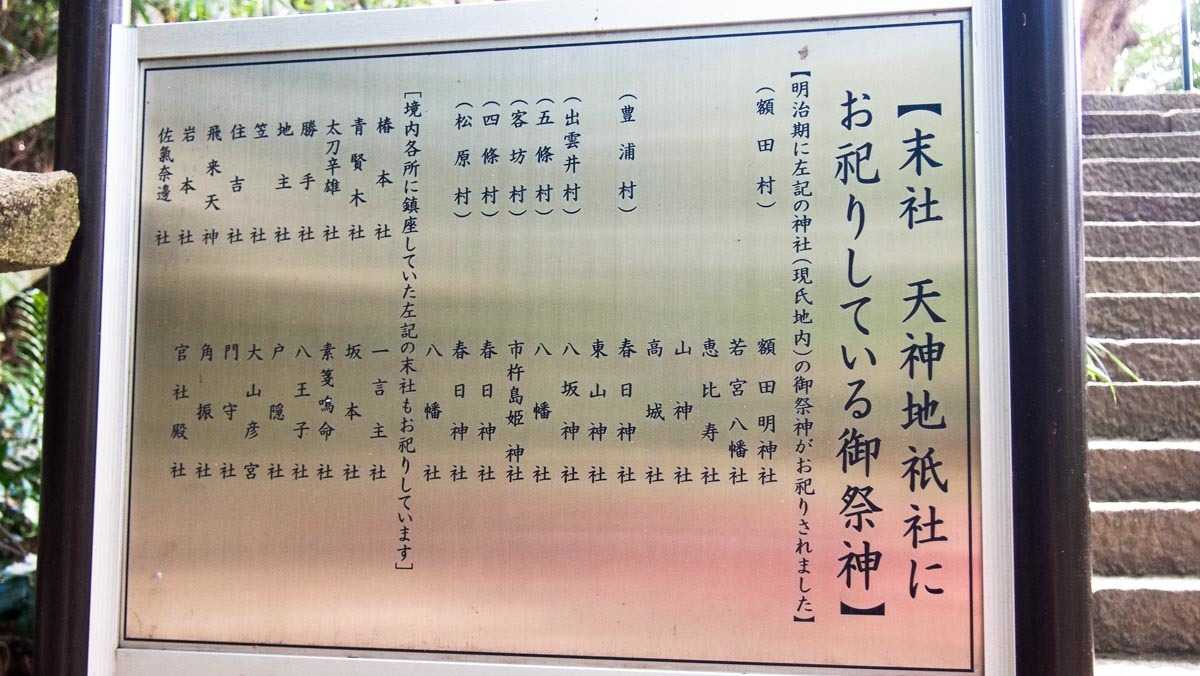 【末社 天神地祇社に
お祀りしている御祭神】
【明治期に左記の神社（現氏地内）の御祭神がお祀りされました】
（額田村） 額田明神社
若宮八幡社
恵比寿社
山神社
高城社
（豊浦村） 春日神社
東山神社
（出雲井村） 八坂神社
（五條村） 八幡社
（客坊村） 市杵島姫神社
（四條村） 春日神社
（松原村） 春日神社
八幡社
［境内各所に鎮座していた左記の末社もお祀りしています］
椿本社 一言主社
青賢木社 坂本社
太刀辛雄社 素箋嗚命社
勝手社 八王子社
地主社 戸隠社
笠社 大山彦宮
住吉社 門守社
飛来天神 角振社
岩本社 官社殿社
佐氣奈邊社